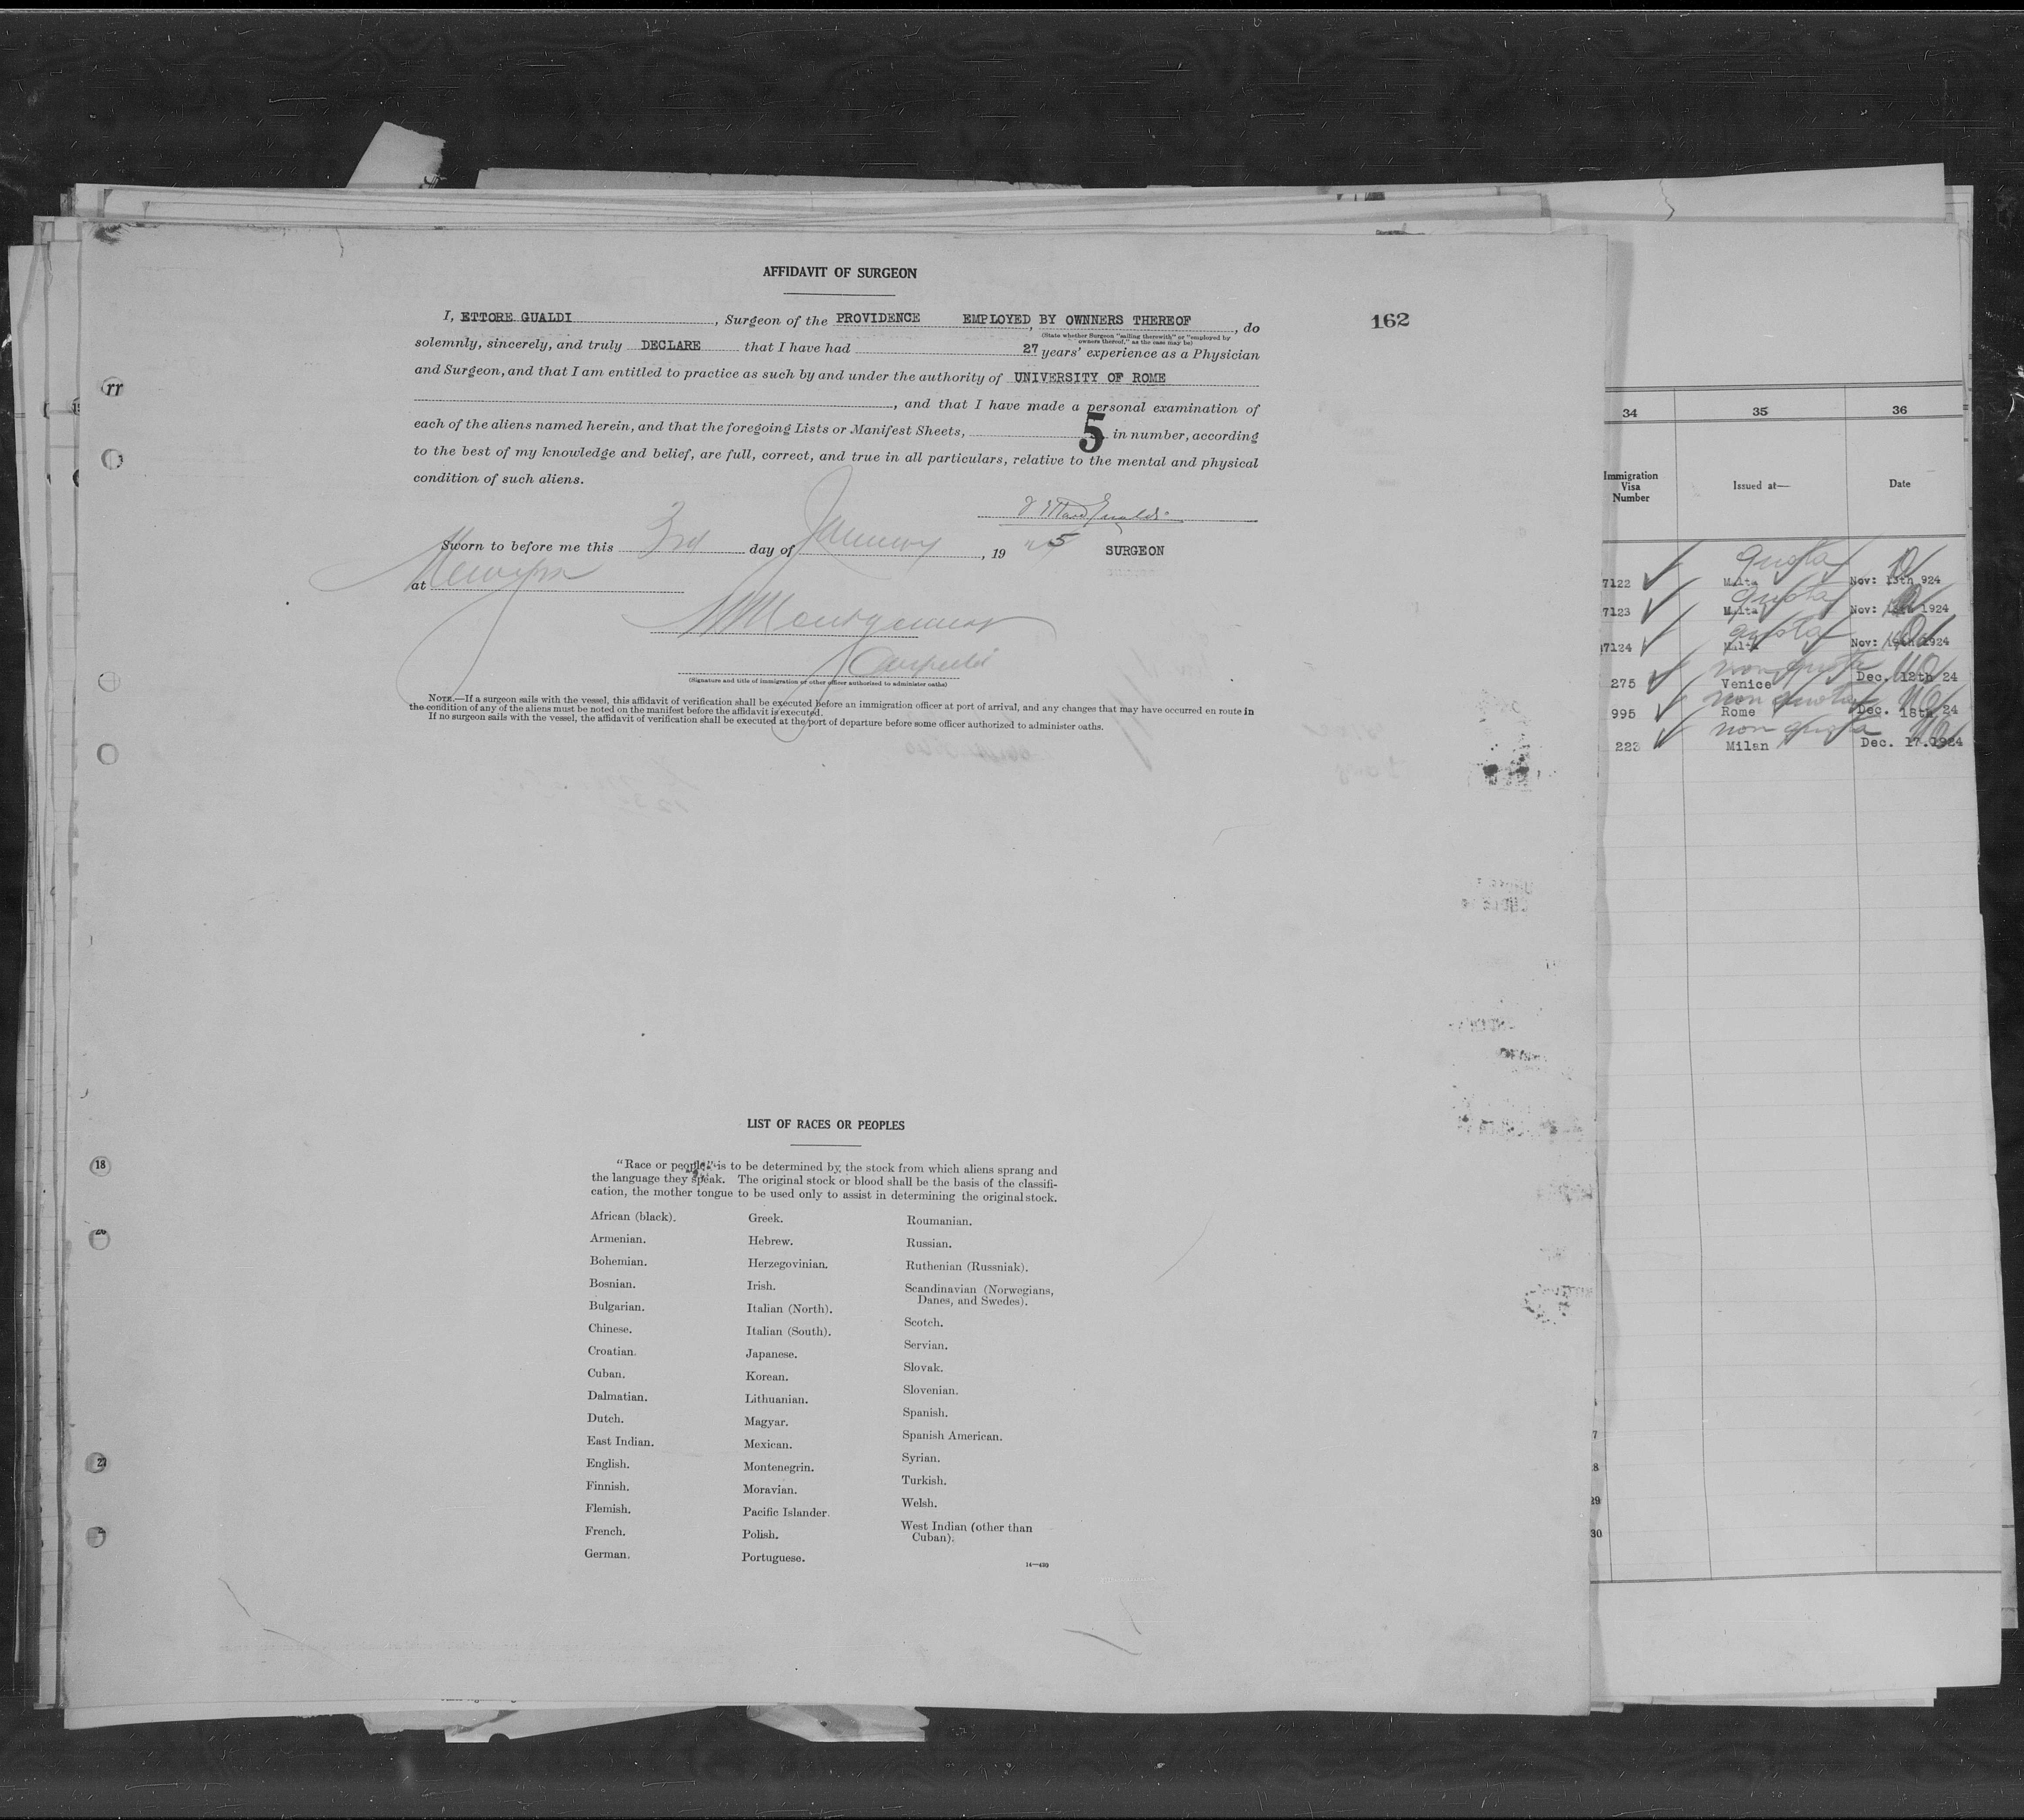 AFFIDAVIT OF SURGEON
162
I, ETTORE GUALDI, Surgeon of the PROVIDENCE, EMPLOYED BY OWNNERS THEREOF, do
(State whether Surgeon "sailing therewith" or "employed by
owners thereof," as the case may be)
solemnly, sincerely, and truly DECLARE that I have had 27 years' experience as a Physician
and Surgeon, and that I am entitled to practice as such by and under the authority of UNIVERSITY OF ROME
, and that I have made a personal examination of
each of the aliens named herein, and that the foregoing Lists or Manifest Sheets, 5 in number, according
to the best of my knowledge and belief, are full, correct, and true in all particulars, relative to the mental and physical
condition of such aliens.
Sworn to before me this 3rd day of January, 19 25
SURGEON
at
Montgomery
(Signature and title of immigration or other officer authorized to administer oaths)
NOTE.—If a surgeon sails with the vessel, this affidavit of verification shall be executed before an immigration officer at port of arrival, and any changes that may have occurred en route in
the condition of any of the aliens must be noted on the manifest before the affidavit is executed.
If no surgeon sails with the vessel, the affidavit of verification shall be executed at the port of departure before some officer authorized to administer oaths.
LIST OF RACES OR PEOPLES
"Race or people" is to be determined by the stock from which aliens sprang and
the language they speak. The original stock or blood shall be the basis of the classifi-
cation, the mother tongue to be used only to assist in determining the original stock.
African (black).
Armenian.
Bohemian.
Bosnian.
Bulgarian.
Chinese.
Croatian.
Cuban.
Dalmatian.
Dutch.
East Indian.
English.
Finnish.
Flemish.
French.
German.
Greek.
Hebrew.
Herzegovinian.
Irish.
Italian (North).
Italian (South).
Japanese.
Korean.
Lithuanian.
Magyar.
Mexican.
Montenegrin.
Moravian.
Pacific Islander.
Polish.
Portuguese.
Roumanian.
Russian.
Ruthenian (Russniak).
Scandinavian (Norwegians,
Danes, and Swedes).
Scotch.
Servian.
Slovak.
Slovenian.
Spanish.
Spanish American.
Syrian.
Turkish.
Welsh.
West Indian (other than
Cuban).
14—430
34 35 36
Immigration
Visa
Number
Issued at—
Date
quota
7122 Malta Nov: 13th 924
quota
7123 Malta Nov: 1924
quota
7124 Malta Nov: 1924
non quota
275 Venice Dec. 12th 24
non quota
995 Rome Dec. 18th 24
non quota
223 Milan Dec. 17.1924
29
30
18
27